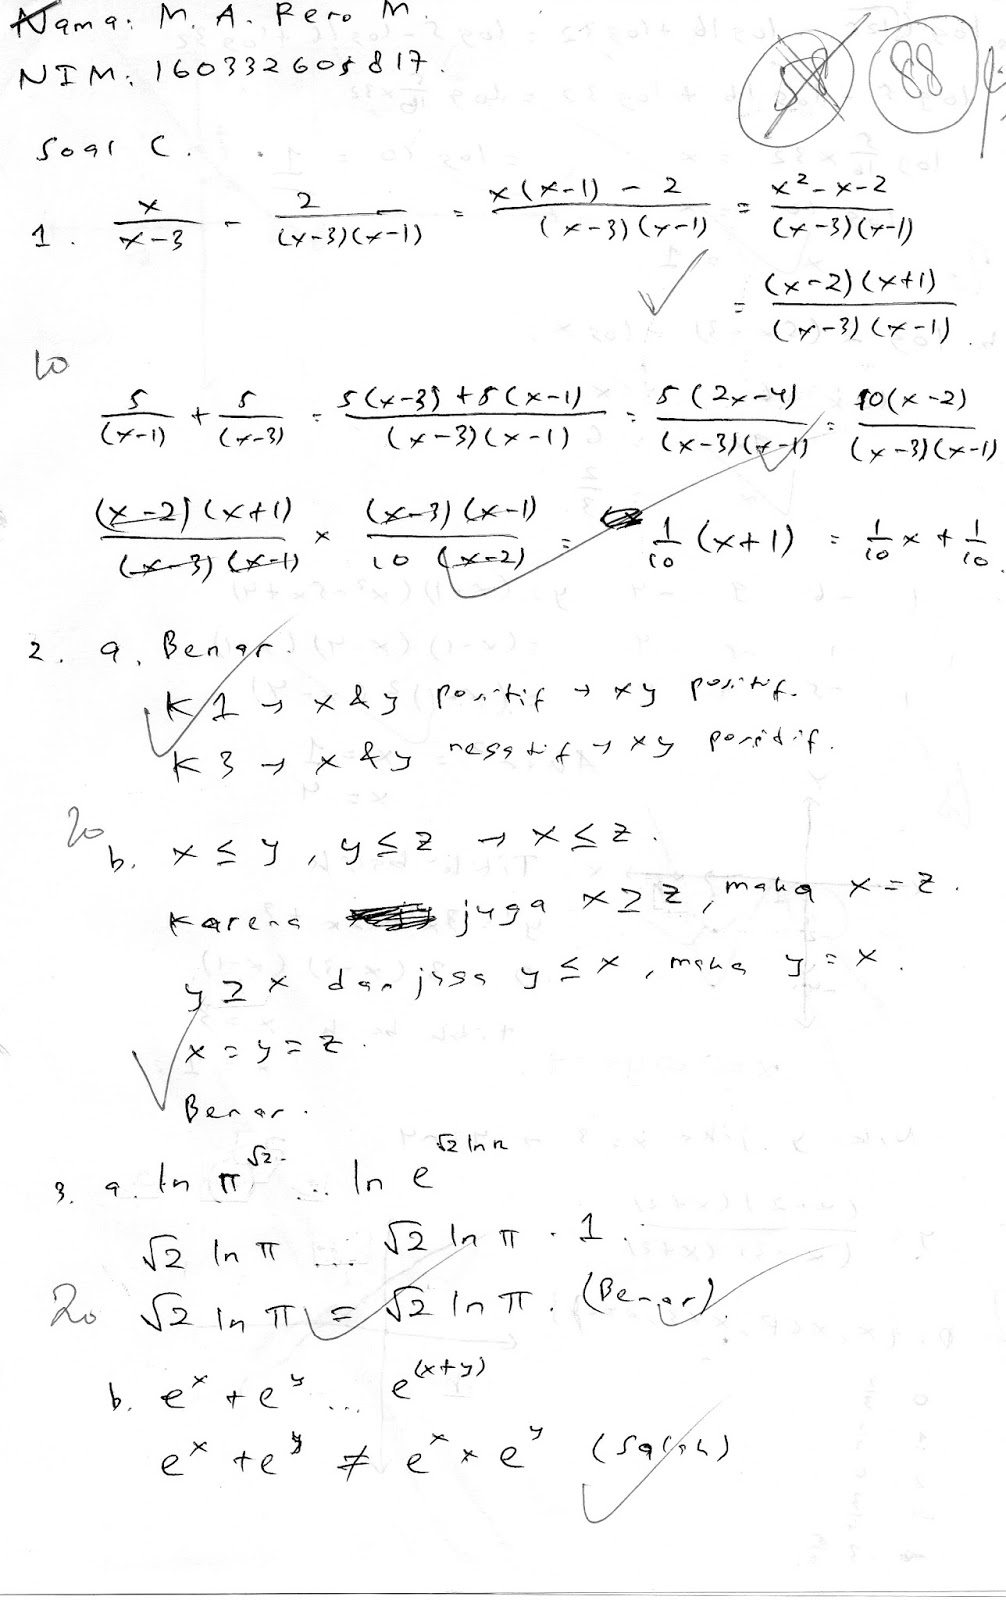 Nama: M. A. Rero M.
NIM: 160332605817.
58 88
Soal C.
1. x/(x-3) - 2/((x-3)(x-1)) = (x(x-1) - 2)/((x-3)(x-1)) = (x²-x-2)/((x-3)(x-1))
= ((x-2)(x+1))/((x-3)(x-1)).
10
5/(x-1) + 5/(x-3) = (5(x-3)+5(x-1))/((x-3)(x-1)) = (5(2x-4))/((x-3)(x-1)) = (10(x-2))/((x-3)(x-1))
((x-2)(x+1))/((x-3)(x-1)) × ((x-3)(x-1))/(10(x-2)) = 1/10 (x+1) = 1/10 x + 1/10.
2. a. Benar.
K1 → x & y positif → xy positif.
K3 → x & y negatif → xy positif.
20
b. x ≤ y, y ≤ z → x ≤ z.
Karena juga x ≥ z, maka x = z.
y ≥ x dan juga y ≤ x, maka y = x.
x = y = z.
Benar.
3. a. ln π^√2 ... ln e^(√2 ln π)
√2 ln π ... √2 ln π · 1.
20 √2 ln π = √2 ln π. (Benar)
b. e^x + e^y ... e^(x+y)
e^x + e^y ≠ e^x × e^y (Salah)